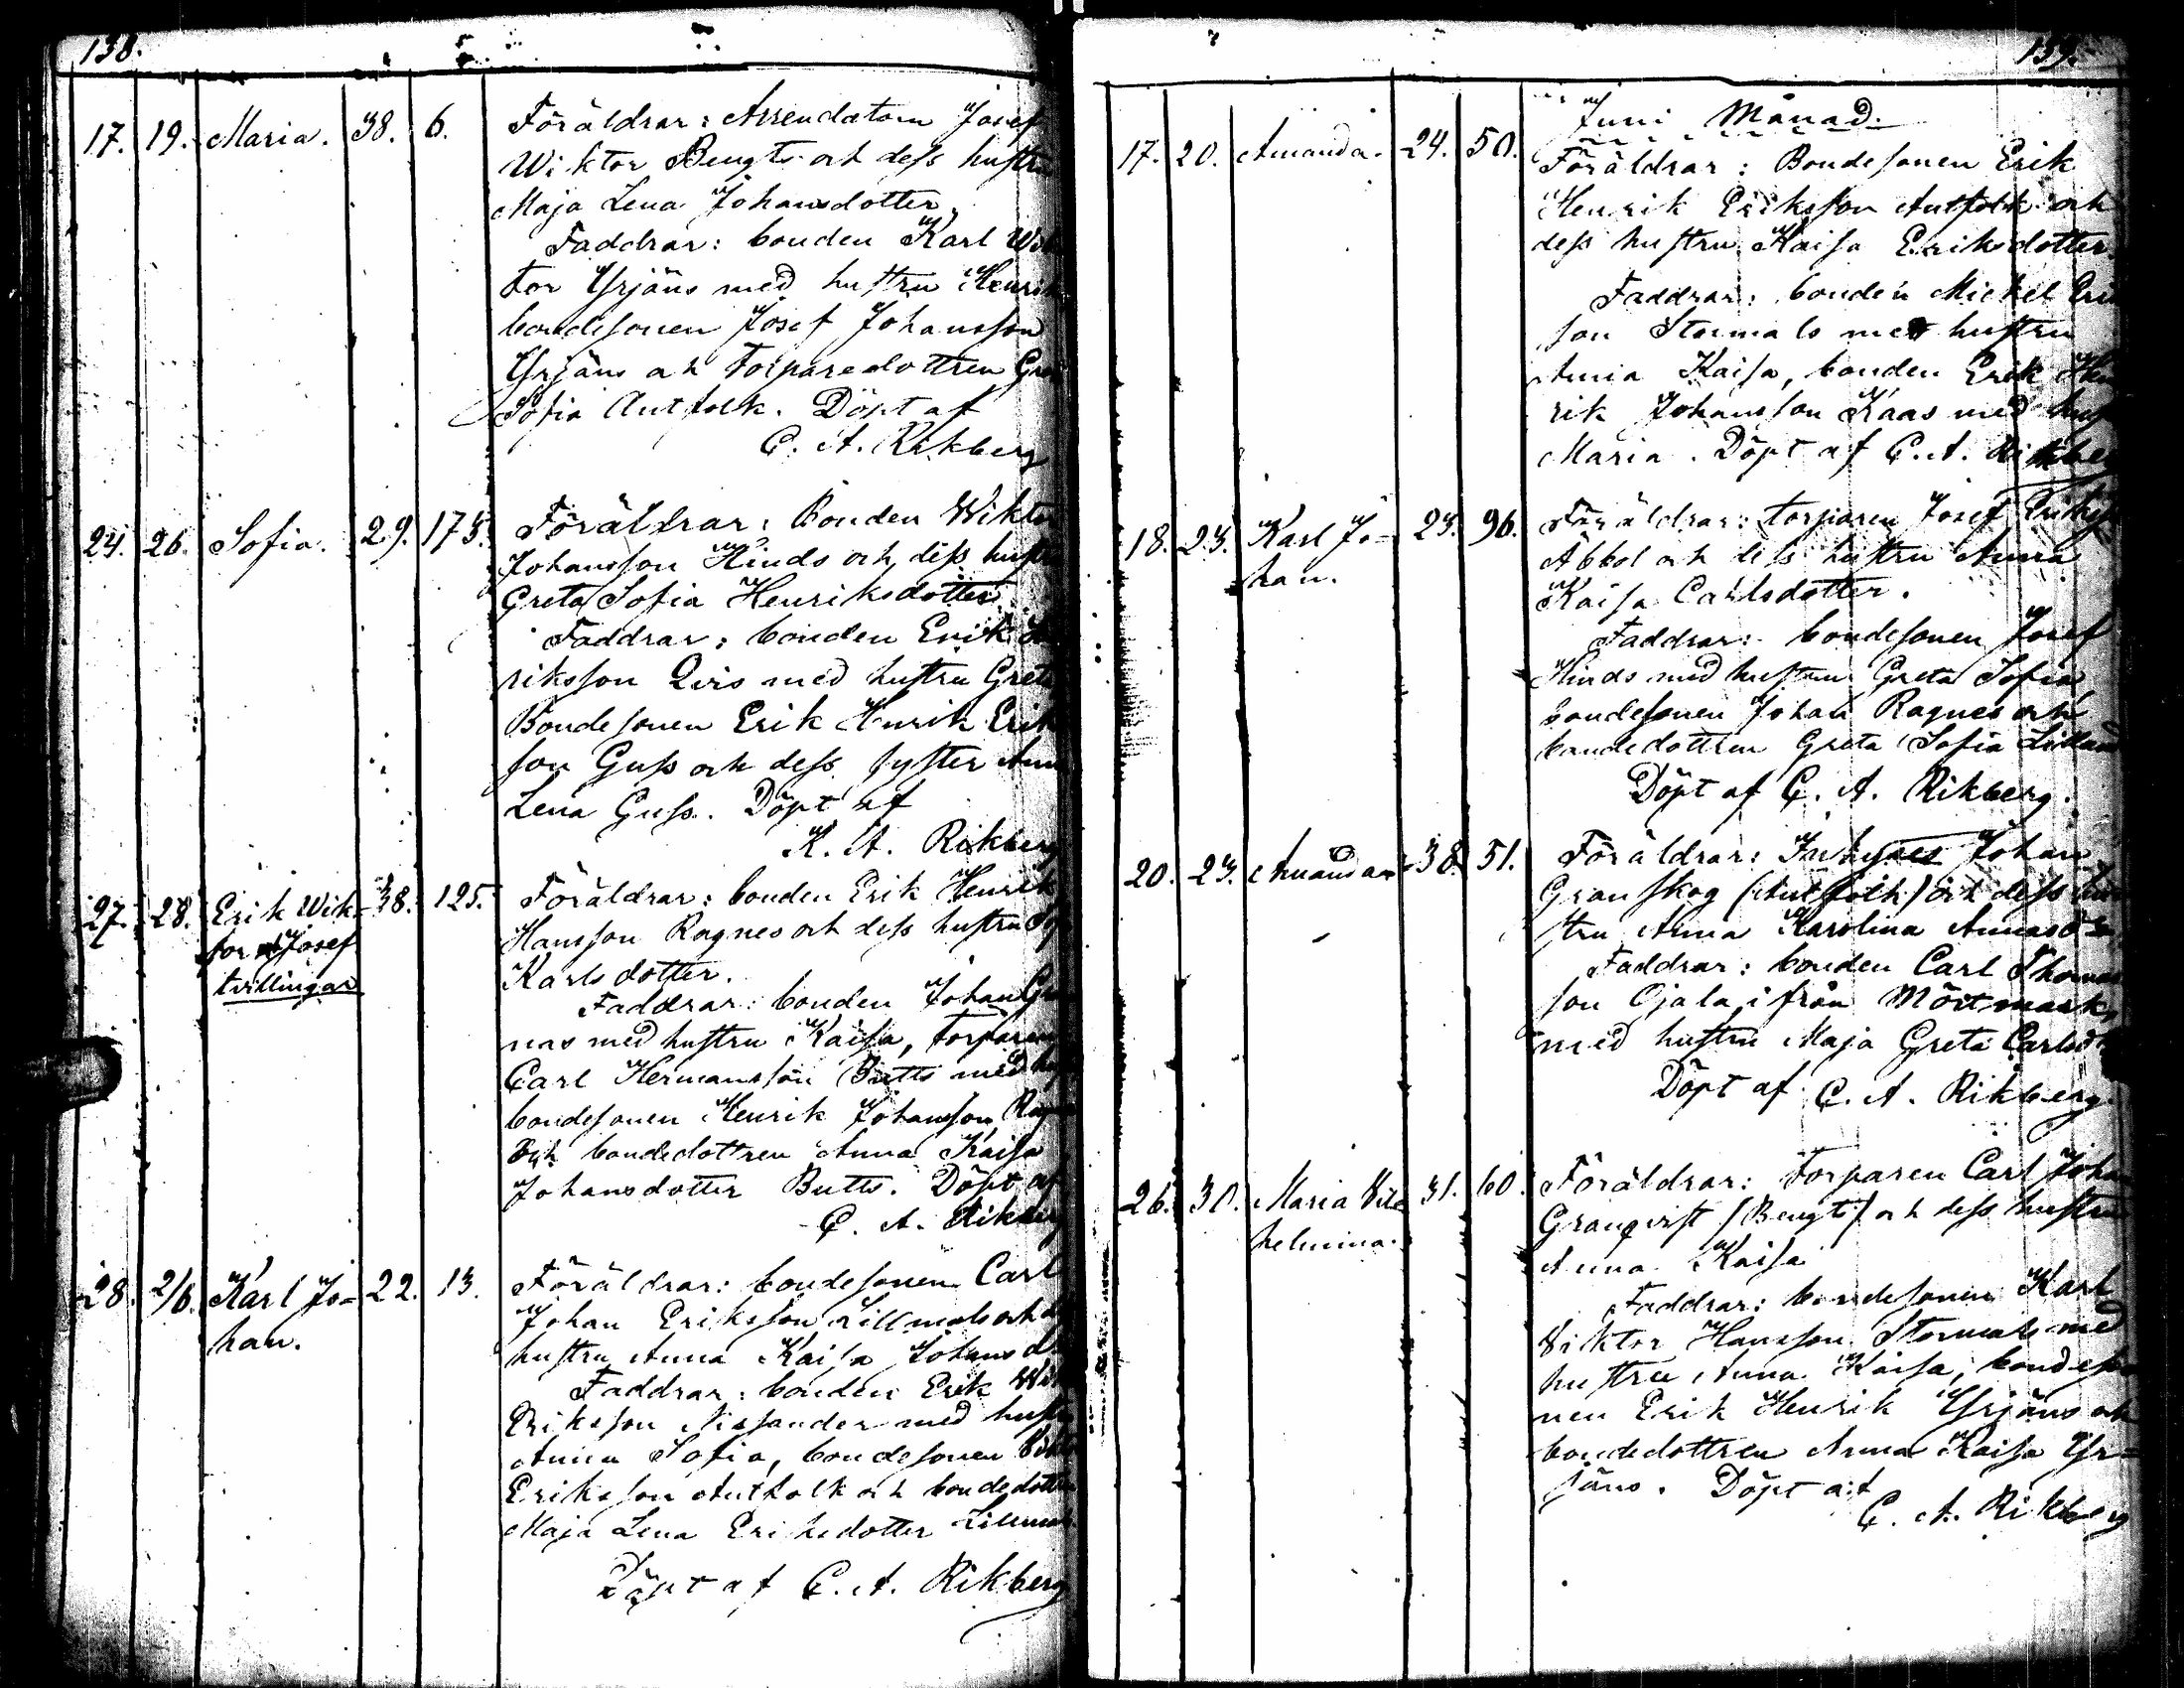 138.
17. 19. Maria. 38. 6. Föräldrar: Arrendatorn Josef
Wiktor Bengts och dess hustru
Maja Lena Johansdotter
Faddrar: bonden Karl Wik
tor Yrjäns med hustru Henrik
bondesonen Josef Johansson
Yrjäns och torparedottren Greta
Sofia Antfolk. Döpt af
C. A. Rikberg
24. 26. Sofia. 29. 173. Föräldrar: Bonden Wiktor
Johansson Hinds och dess hustru
Greta Sofia Henriksdotter
Faddrar: bonden Erik
riksson Qvis med hustru Greta
Bondesonen Erik Henrik Erik
son Guss och dess syster Anna
Lena Guss. Döpt af
K. A. Rikberg
27. 28. Erik Wik- 38. 125. Föräldrar: bonden Erik Henrik
tor o Josef
tvillingar
Hansson Ragnes och dess hustru
Karlsdotter.
Faddrar: bonden Johan
nas med hustru Kaisa, torparen
Carl Hermansson Butts med
bondesonen Henrik Johansson
och bondedottren Anna Kaisa
Johansdotter Butts. Döpt af
C. A. Rikberg
28. 2/6. Karl Jo- 22. 13. Föräldrar: bondesonen Carl
han.
Johan Eriksson Lillmals och
hustru Anna Kaisa Johansd.
Faddrar: bonden Erik Wik
Eriksson Nissander med hustru
Anna Sofia, bondesonen
Eriksson Antfolk och bondedottren
Maja Lena Eriksdotter Lillmals
Döpt af C. A. Rikberg
139.
Juni Månad.
17. 20. Amanda. 24. 50. Föräldrar: Bondesonen Erik
Henrik Eriksson Antfolk och
dess hustru Kaisa Eriksdotter.
Faddrar: bonden Mickel Erik
son Stormals med hustru
Anna Kaisa, bonden Erik Hen
rik Johansson Kaas med
Maria. Döpt af C. A. Rikberg
18. 23. Karl Jo- 23. 96. Föräldrar: torparen Josef
han.
Abbol och dess hustru Anna
Kaisa Carlsdotter.
Faddrar: bondesonen Josef
Hinds med hustru Greta Sofia,
bondesonen Johan Ragnes och
bondedottren Greta Sofia
Döpt af C. A. Rikberg.
20. 23. Amanda 38. 51. Föräldrar: Inhyses Johan
Granskog (Antfolk) och dess hu
stru Anna Karolina
Faddrar: bonden Carl Thomas
son Ojala ifrån Mörtmark,
med hustru Maja Greta Carlsd
Döpt af C. A. Rikberg.
26. 30. Maria Vil- 31. 60. Föräldrar: Torparen Carl Johan
helmina.
Granqvist (Bengts) och dess hustru
Anna Kaisa
Faddrar: bondesonen Karl
Viktor Hansson Stormals med
hustru Anna Kaisa, bondeso
nen Erik Henrik Yrjäns och
bondedottren Anna Kaisa Yr-
jäns. Döpt af
C. A. Rikberg